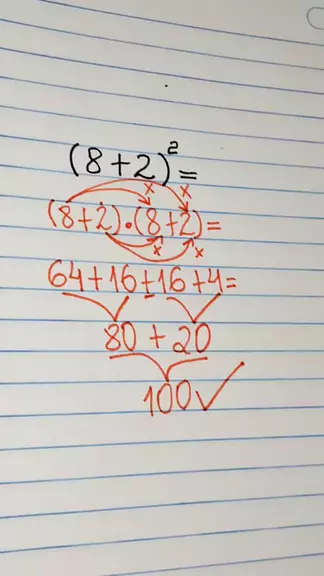 (8+2)²=
(8+2)·(8+2)=
64+16+16+4=
80+20
100✓